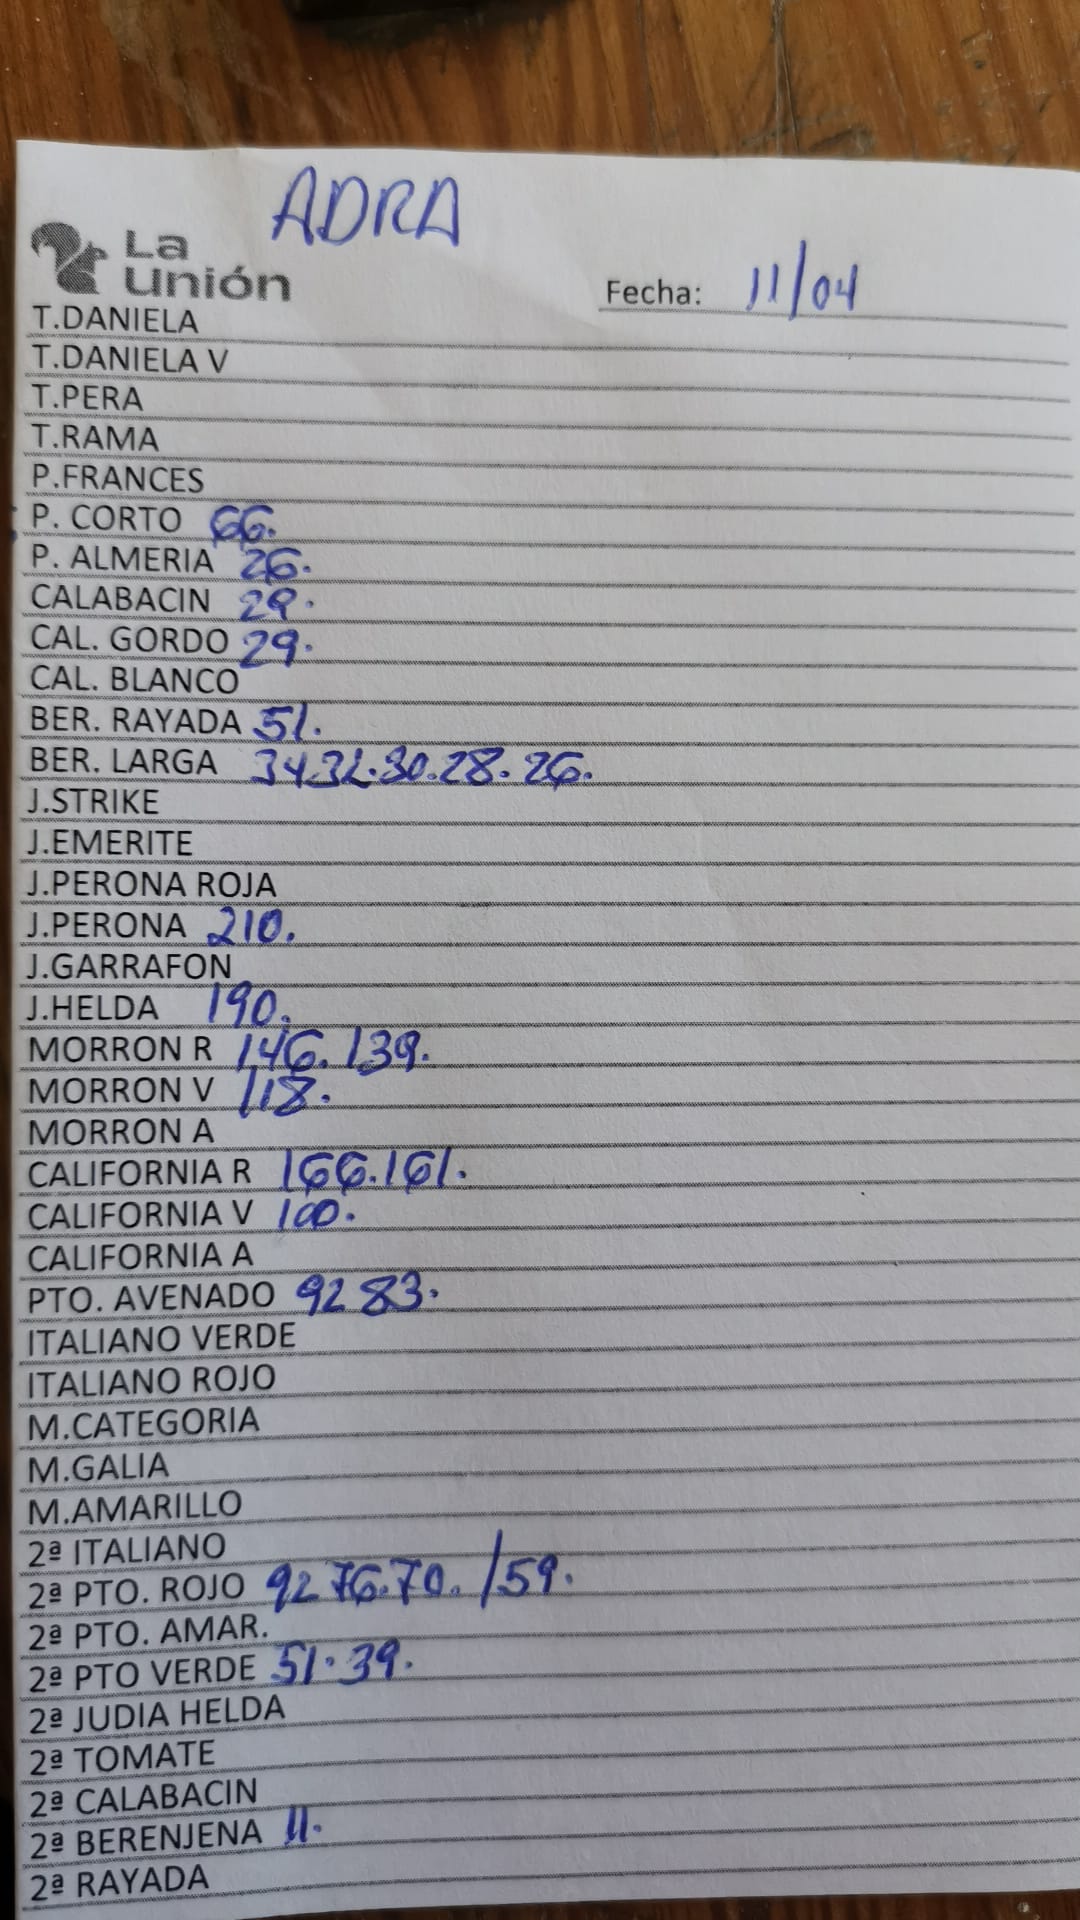 ADRA
La
Unión
Fecha: 11/04
T.DANIELA
T.DANIELA V
T.PERA
T.RAMA
P.FRANCES
P. CORTO 66.
P. ALMERIA 26.
CALABACIN 29.
CAL. GORDO 29.
CAL. BLANCO
BER. RAYADA 51.
BER. LARGA 34.32.30.28.26.
J.STRIKE
J.EMERITE
J.PERONA ROJA
J.PERONA 210.
J.GARRAFON
J.HELDA 190.
MORRON R 146.139.
MORRON V 118.
MORRON A
CALIFORNIA R 166.161.
CALIFORNIA V 100.
CALIFORNIA A
PTO. AVENADO 92 83.
ITALIANO VERDE
ITALIANO ROJO
M.CATEGORIA
M.GALIA
M.AMARILLO
2ª ITALIANO
2ª PTO. ROJO 92 76.70. /59.
2ª PTO. AMAR.
2ª PTO VERDE 51.39.
2ª JUDIA HELDA
2ª TOMATE
2ª CALABACIN
2ª BERENJENA 11.
2ª RAYADA